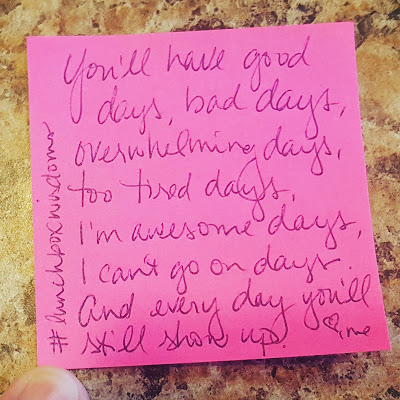 You'll have good
days, bad days,
overwhelming days,
too tired days,
I'm awesome days,
I can't go on days.
And every day you'll
still show up. ♡, me
#lunchboxwisdoms